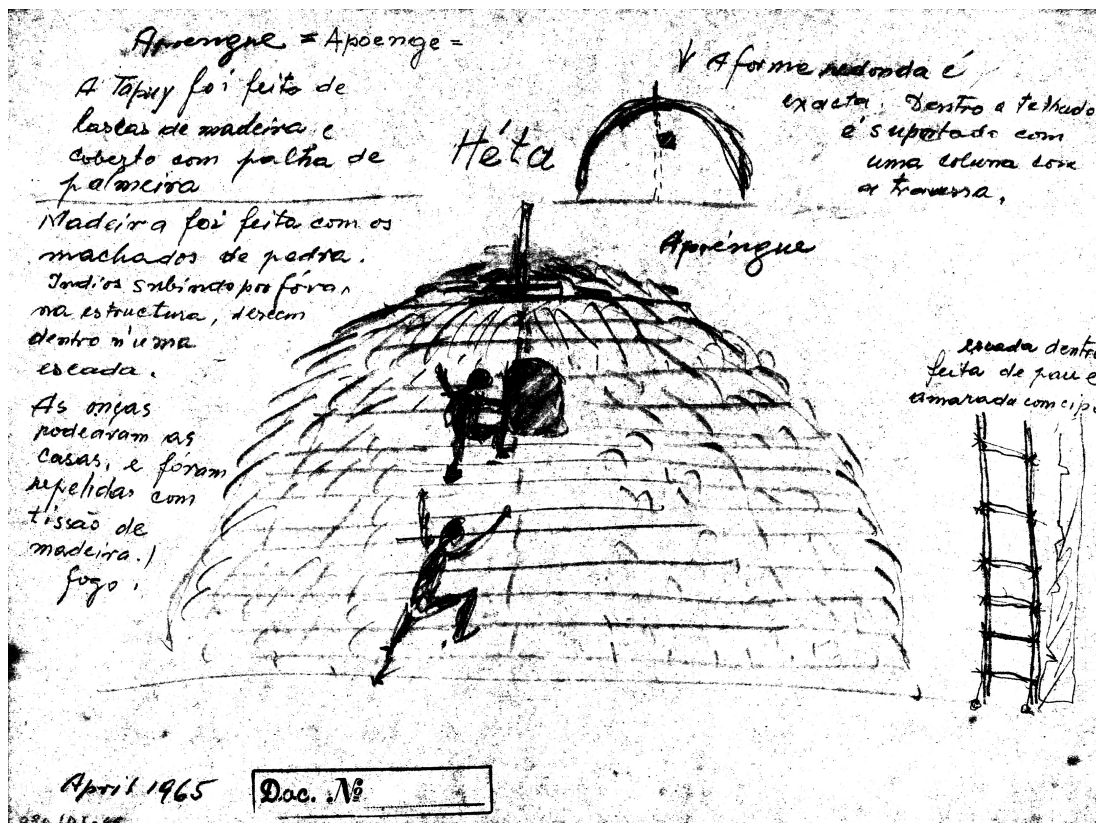 Apoengue = Apoenge =
A Tapuy foi feito de
lascas de madeira e
coberto com palha de
palmeira
Madeira foi feita com os
machados de pedra.
Indios subindo por fóra,
na estructura, descem
dentro n'uma
escada.
As onças
rodearam as
casas, e fóram
repelidas com
tissão de
madeira./
fogo.
Héta
↓ A forma redonda é
exacta. Dentro o telhado
é suportado com
uma coluna com
a travessa.
Apoéngue
escada dentro
feita de pau e
amarada com cipo
April 1965
Doc. Nº